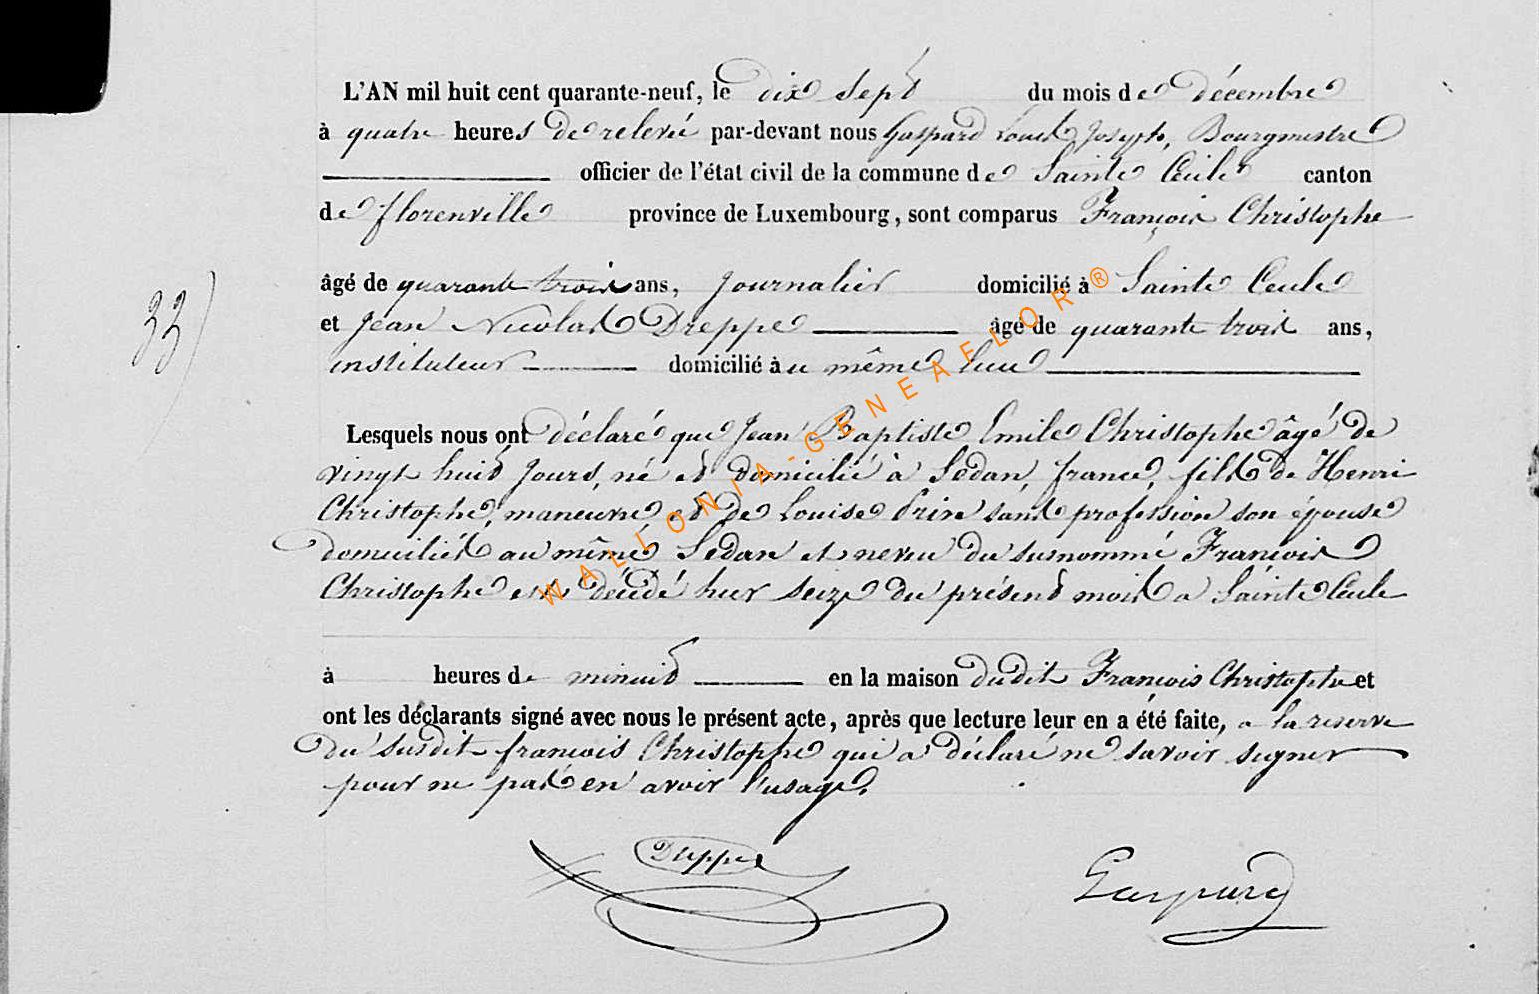 L'AN mil huit cent quarante-neuf, le dix sept du mois de décembre
à quatre heures de relevée par-devant nous Gaspard Louis Joseph, Bourgmestre
officier de l'état civil de la commune de Sainte Cecile canton
de florenville province de Luxembourg, sont comparus François Christophe
âgé de quarante trois ans, Journalier domicilié à Sainte Cecile
et Jean Nicolas Dreppe âgé de quarante trois ans,
instituteur domicilié au même lieu
33)
Lesquels nous ont déclaré que Jean Baptiste Emile Christophe âgé de
vingt huit Jours, né et domicilié à Sédan, france, fils de Henri
Christophe, maneuvre, et de Louise sans profession son épouse
domiciliés au même Sedan et neveu du surnommé François
Christophe est décédé hier seize du présent mois a Sainte Cecile
à heures de minuit en la maison dudit François Christophe et
ont les déclarants signé avec nous le présent acte, après que lecture leur en a été faite, a la reserve
du susdit françois Christophe qui a déclaré ne savoir signer
pour ne pas en avoir l'usage.
Dreppe Gaspard
WALLONIA-GENEAFLOR®